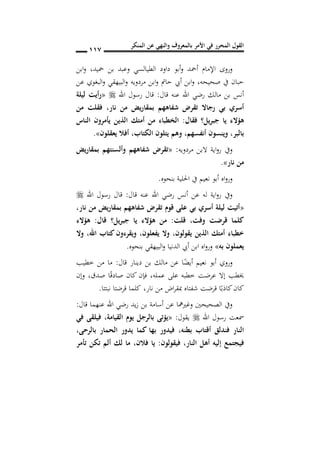 القول المحرر في الأمر بالمعروف والنهي عن المنكر
١١٧
وروى الإمام أحمد وأبو داود الطيالسي وعبد بن حميد، وابن
حبان في صحيحه، وابن أبي حاتم وابن مردويه والبيهقي والبغوي عن
أنس بن مالك رضي الله عنه قال: قال رسول الله ﷺ «رأيت ليلة
أسري بي رجالا تقرض شفاههم بمقاريض من نار، فقلت من
هؤلاء يا جبريل؟ فقال: الخطباء من أمتك الذين يأمرون الناس
بالبر، وينسون أنفسهم، وهم يتلون الكتاب، أفلا يعقلون».
وفي رواية لابن مردويه: «تقرض شفاههم وألسنتهم بمقاريض
من نار».
ورواه أبو نعيم في الحلية بنحوه.
وفي رواية له عن أنس رضي الله عنه قال: قال رسول الله ﷺ
«أتيت ليلة أسري بي على قوم تقرض شفاههم بمقاريض من نار،
كلما قرضت وفت، قلت: من هؤلاء يا جبريل؟ قال: هؤلاء
خطباء أمتك الذين يقولون، ولا يفعلون، ويقرءون كتاب الله، ولا
يعملون به» ورواه ابن أبي الدنيا والبيهقي بنحوه.
وروى أبو نعيم أيضًا عن مالك بن دينار قال: ما من خطيب
يخطب إلا عرضت خطبته على عمله، فإن كان صادقًا صدق، وإن
كان كاذبًا قرضت شفتاه بمقراض من نار، كلما قرضتا نبتتا.
وفي الصحيحين وغيرهما عن أسامة بن زيد رضي الله عنهما قال:
سمعت رسول الله ﷺ يقول: «يؤتى بالرجل يوم القيامة، فيلقى في
النار فتندلق أقتاب بطنه، فيدور بها كما يدور الحمار بالرحى،
فيجتمع إليه أهل النار، فيقولون: يا فلان، ما لك ألم تكن تأمر